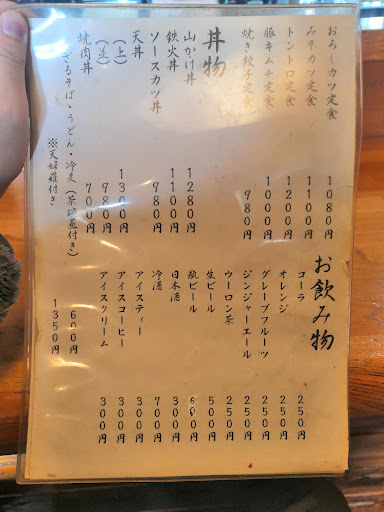 おろしカツ定食 1080円
みそカツ定食 1100円
トントロ定食 1200円
豚キムチ定食 1000円
焼き餃子定食 980円
丼物
山かけ丼 1280円
鉄火丼 1100円
ソースカツ丼 980円
天丼
(上) 1300円
(並) 980円
焼肉丼 700円
ざるそば・うどん・冷麦(茶碗蒸付き) 600円
※天婦羅付き 1350円
お飲み物
コーラ 250円
オレンジ 250円
グレープフルーツ 250円
ジンジャーエール 250円
ウーロン茶 250円
生ビール 500円
瓶ビール 600円
日本酒 300円
冷酒 700円
アイスティー 300円
アイスコーヒー 300円
アイスクリーム 300円